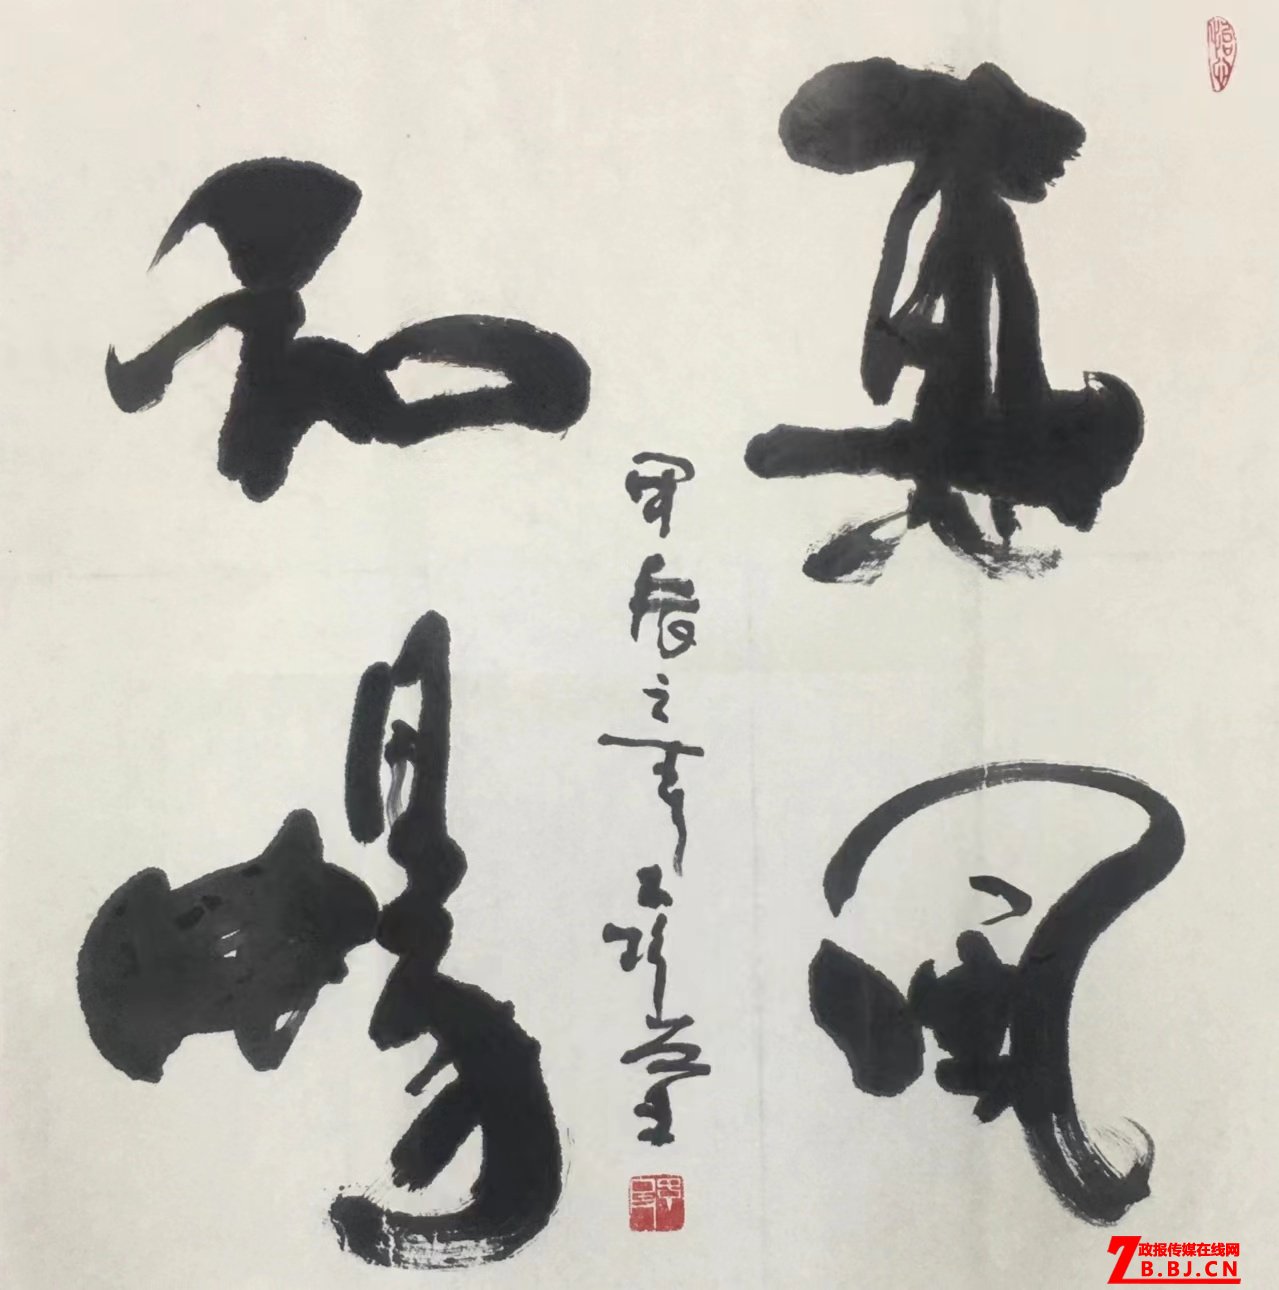 惠風
和暢
甲辰之
政报传媒在线网
ZB.BJ.CN